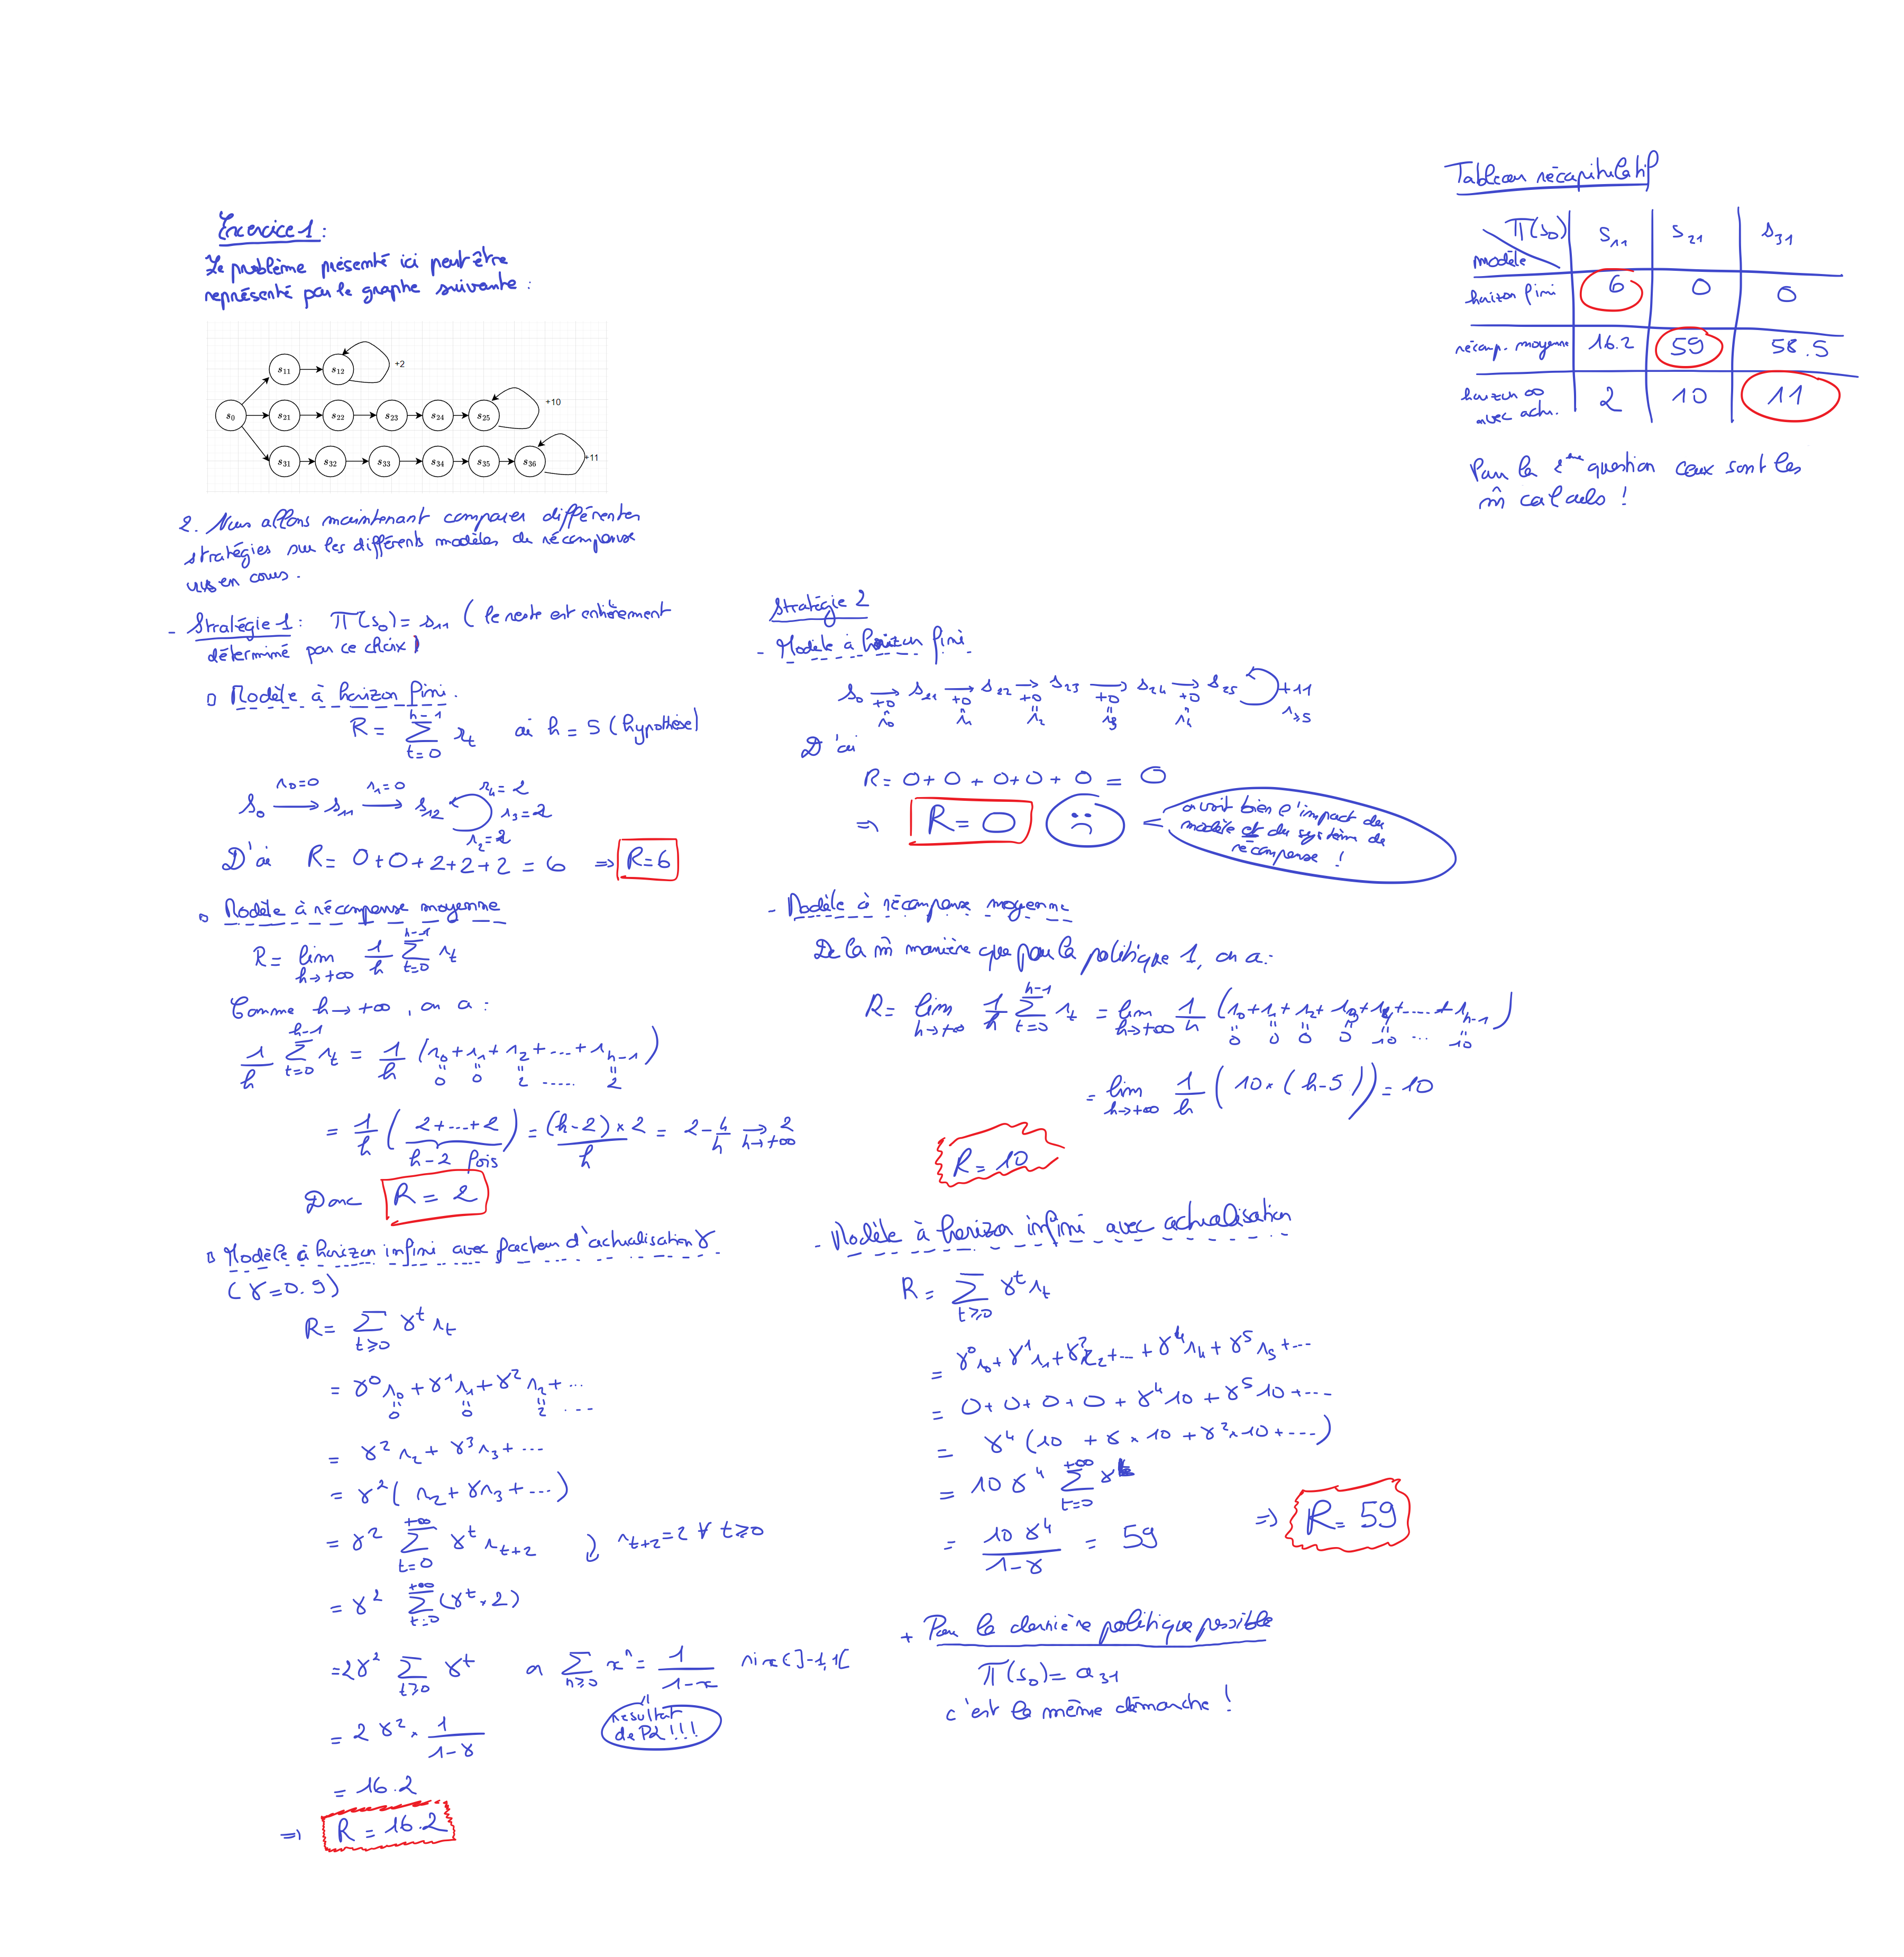 Exercice 1 :
Le problème présenté ici peut être
représenté par le graphe suivante :
s₁₁ s₁₂ +2
s₀ s₂₁ s₂₂ s₂₃ s₂₄ s₂₅ +10
s₃₁ s₃₂ s₃₃ s₃₄ s₃₅ s₃₆ +11
2. Nous allons maintenant comparer différentes
stratégies sur les différents modèles de récompense
vus en cours.
- Stratégie 1 : Π(s₀) = s₁₁ (le reste est entièrement
déterminé par ce choix)
□ Modèle à horizon fini.
R = Σ_{t=0}^{h-1} r_t où h = 5 (hypothèse)
r₀=0 r₁=0 r₄=2
s₀ → s₁₁ → s₁₂ r₃=2
r₂=2
D'où R = 0+0+2+2+2 = 6 ⇒ R=6
▫ Modèle à récompense moyenne
R = lim_{h→+∞} 1/h Σ_{t=0}^{h-1} r_t
Comme h → +∞, on a :
1/h Σ_{t=0}^{h-1} r_t = 1/h (r₀ + r₁ + r₂ + ... + r_{h-1})
0 0 2 ..... 2
= 1/h (2+...+2) = (h-2)×2 / h = 2 - 4/h → 2
h-2 fois h→+∞
Donc R = 2
▫ Modèle à horizon infini avec facteur d'actualisation γ
(γ=0.9)
R = Σ_{t≥0} γ^t r_t
= γ⁰r₀ + γ¹r₁ + γ²r₂ + ...
0 0 2 ....
= γ²r₂ + γ³r₃ + ...
= γ²( r₂ + γr₃ + ...)
= γ² Σ_{t=0}^{+∞} γ^t r_{t+2} r_{t+2} = 2 ∀ t≥0
= γ² Σ_{t=0}^{+∞} (γ^t × 2)
= 2γ² Σ_{t≥0} γ^t or Σ_{n≥0} x^n = 1/(1-x) si x∈]-1,1[
résultat
de P2!!!
= 2γ² × 1/(1-γ)
= 16.2
⇒ R = 16.2
Stratégie 2
- Modèle à horizon fini
s₀ → s₂₁ → s₂₂ → s₂₃ → s₂₄ → s₂₅ +11
+0 +0 +0 +0 +0
r₀ r₁ r₂ r₃ r₄ r≥5
D'où
R = 0+0+0+0+0 = 0
⇒ R = 0
on voit bien l'impact du
modèle et du système de
récompense !
- Modèle à récompense moyenne
De la m̂ manière que pour la politique 1, on a :
R = lim_{h→+∞} 1/h Σ_{t=0}^{h-1} r_t = lim_{h→+∞} 1/h (r₀+r₁+r₂+r₃+r₄+.....+r_{h-1})
0 0 0 0 10 ... 10
= lim_{h→+∞} 1/h (10×(h-5)) = 10
R = 10
- Modèle à horizon infini avec actualisation
R = Σ_{t≥0} γ^t r_t
= γ⁰r₀ + γ¹r₁ + γ²r₂ + ... + γ⁴r₄ + γ⁵r₅ + ...
= 0+0+0+0+γ⁴10+γ⁵10+...
= γ⁴(10 + γ×10 + γ²×10 + ...)
= 10γ⁴ Σ_{t=0}^{+∞} γ^t
= 10γ⁴/(1-γ) = 59 ⇒ R = 59
+ Pour la dernière politique possible
Π(s₀) = a₃₁
c'est la même démarche !
Tableau récapitulatif
Π(s₀) s₁₁ s₂₁ s₃₁
modèle
horizon fini 6 0 0
récomp. moyenne 16.2 59 58.5
horizon ∞ 2 10 11
avec actu.
Pour la 2ème question ceux sont les
m̂ calculs !